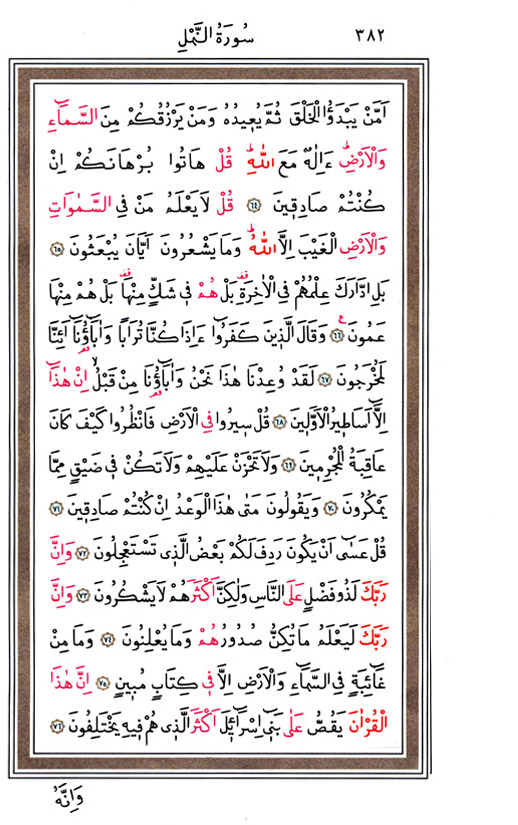 ٣٨٢ سُورَةُ النَّمْلِ
اَمَّنْ يَبْدَؤُا الْخَلْقَ ثُمَّ يُعِيدُهُ وَمَنْ يَرْزُقُكُمْ مِنَ السَّمَٓاءِ
وَالْاَرْضِۜ ءَاِلٰهٌ مَعَ اللّٰهِۜ قُلْ هَاتُوا بُرْهَانَكُمْ اِنْ
كُنْتُمْ صَادِقِينَ ﴿٦٤﴾ قُلْ لَا يَعْلَمُ مَنْ فِي السَّمٰوَاتِ
وَالْاَرْضِ الْغَيْبَ اِلَّا اللّٰهُۜ وَمَا يَشْعُرُونَ اَيَّانَ يُبْعَثُونَ ﴿٦٥﴾
بَلِ ادَّارَكَ عِلْمُهُمْ فِي الْاٰخِرَةِ۠ بَلْ هُمْ فِي شَكٍّ مِنْهَا۠ بَلْ هُمْ مِنْهَا
عَمُونَ ﴿٦٦﴾ وَقَالَ الَّذِينَ كَفَرُٓوا ءَاِذَا كُنَّا تُرَابًا وَاٰبَٓاؤُ۬نَٓا اَئِنَّا
لَمُخْرَجُونَ ﴿٦٧﴾ لَقَدْ وُعِدْنَا هٰذَا نَحْنُ وَاٰبَٓاؤُ۬نَا مِنْ قَبْلُۙ اِنْ هٰذَٓا
اِلَّٓا اَسَاطِيرُ الْاَوَّلِينَ ﴿٦٨﴾ قُلْ سِيرُوا فِي الْاَرْضِ فَانْظُرُوا كَيْفَ كَانَ
عَاقِبَةُ الْمُجْرِمِينَ ﴿٦٩﴾ وَلَا تَحْزَنْ عَلَيْهِمْ وَلَا تَكُنْ فِي ضَيْقٍ مِمَّا
يَمْكُرُونَ ﴿٧٠﴾ وَيَقُولُونَ مَتٰى هٰذَا الْوَعْدُ اِنْ كُنْتُمْ صَادِقِينَ ﴿٧١﴾
قُلْ عَسٰٓى اَنْ يَكُونَ رَدِفَ لَكُمْ بَعْضُ الَّذِي تَسْتَعْجِلُونَ ﴿٧٢﴾ وَاِنَّ
رَبَّكَ لَذُو فَضْلٍ عَلَى النَّاسِ وَلٰكِنَّ اَكْثَرَهُمْ لَا يَشْكُرُونَ ﴿٧٣﴾ وَاِنَّ
رَبَّكَ لَيَعْلَمُ مَا تُكِنُّ صُدُورُهُمْ وَمَا يُعْلِنُونَ ﴿٧٤﴾ وَمَا مِنْ
غَٓائِبَةٍ فِي السَّمَٓاءِ وَالْاَرْضِ اِلَّا فِي كِتَابٍ مُبِينٍ ﴿٧٥﴾ اِنَّ هٰذَا
الْقُرْاٰنَ يَقُصُّ عَلٰى بَنِٓي اِسْرَٓائِلَ اَكْثَرَ الَّذِي هُمْ فِيهِ يَخْتَلِفُونَ ﴿٧٦﴾
وَاِنَّهُ